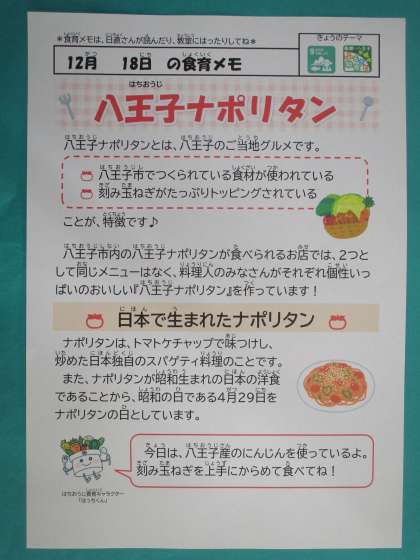 ＊食育メモは、日直さんが読んだり、教室にはったりしてね＊
きょうのテーマ
12月　18日　の食育メモ
八王子ナポリタン
八王子ナポリタンとは、八王子のご当地グルメです。
八王子市でつくられている食材が使われている
刻み玉ねぎがたっぷりトッピングされている
ことが、特徴です♪
八王子市内の八王子ナポリタンが食べられるお店では、2つと
して同じメニューはなく、料理人のみなさんがそれぞれ個性いっ
ぱいのおいしい『八王子ナポリタン』を作っています！
日本で生まれたナポリタン
ナポリタンは、トマトケチャップで味つけし、
炒めた日本独自のスパゲティ料理のことです。
また、ナポリタンが昭和生まれの日本の洋食
であることから、昭和の日である4月29日を
ナポリタンの日としています。
今日は、八王子産のにんじんを使っているよ。
刻み玉ねぎを上手にからめて食べてね！
はちおうじ食育キャラクター
「はっちくん」